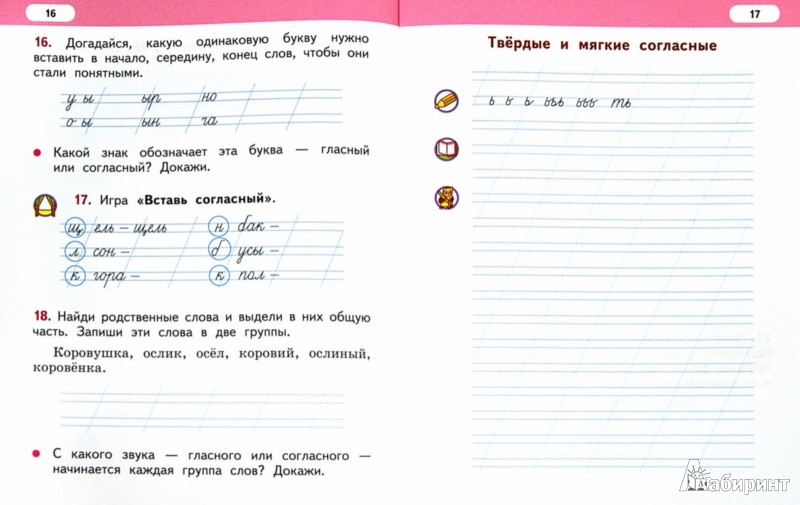 16
16. Догадайся, какую одинаковую букву нужно
вставить в начало, середину, конец слов, чтобы они
стали понятными.
у ы ыр но
о ы ын га
• Какой знак обозначает эта буква — гласный
или согласный? Докажи.
17. Игра «Вставь согласный».
щ ель – щель н бак –
л сон – б усы –
к гора – к пол –
18. Найди родственные слова и выдели в них общую
часть. Запиши эти слова в две группы.
Коровушка, ослик, осёл, коровий, ослиный,
коровёнка.
• С какого звука — гласного или согласного —
начинается каждая группа слов? Докажи.
17
Твёрдые и мягкие согласные
ь ь ь ььь ььь ть
Лабиринт